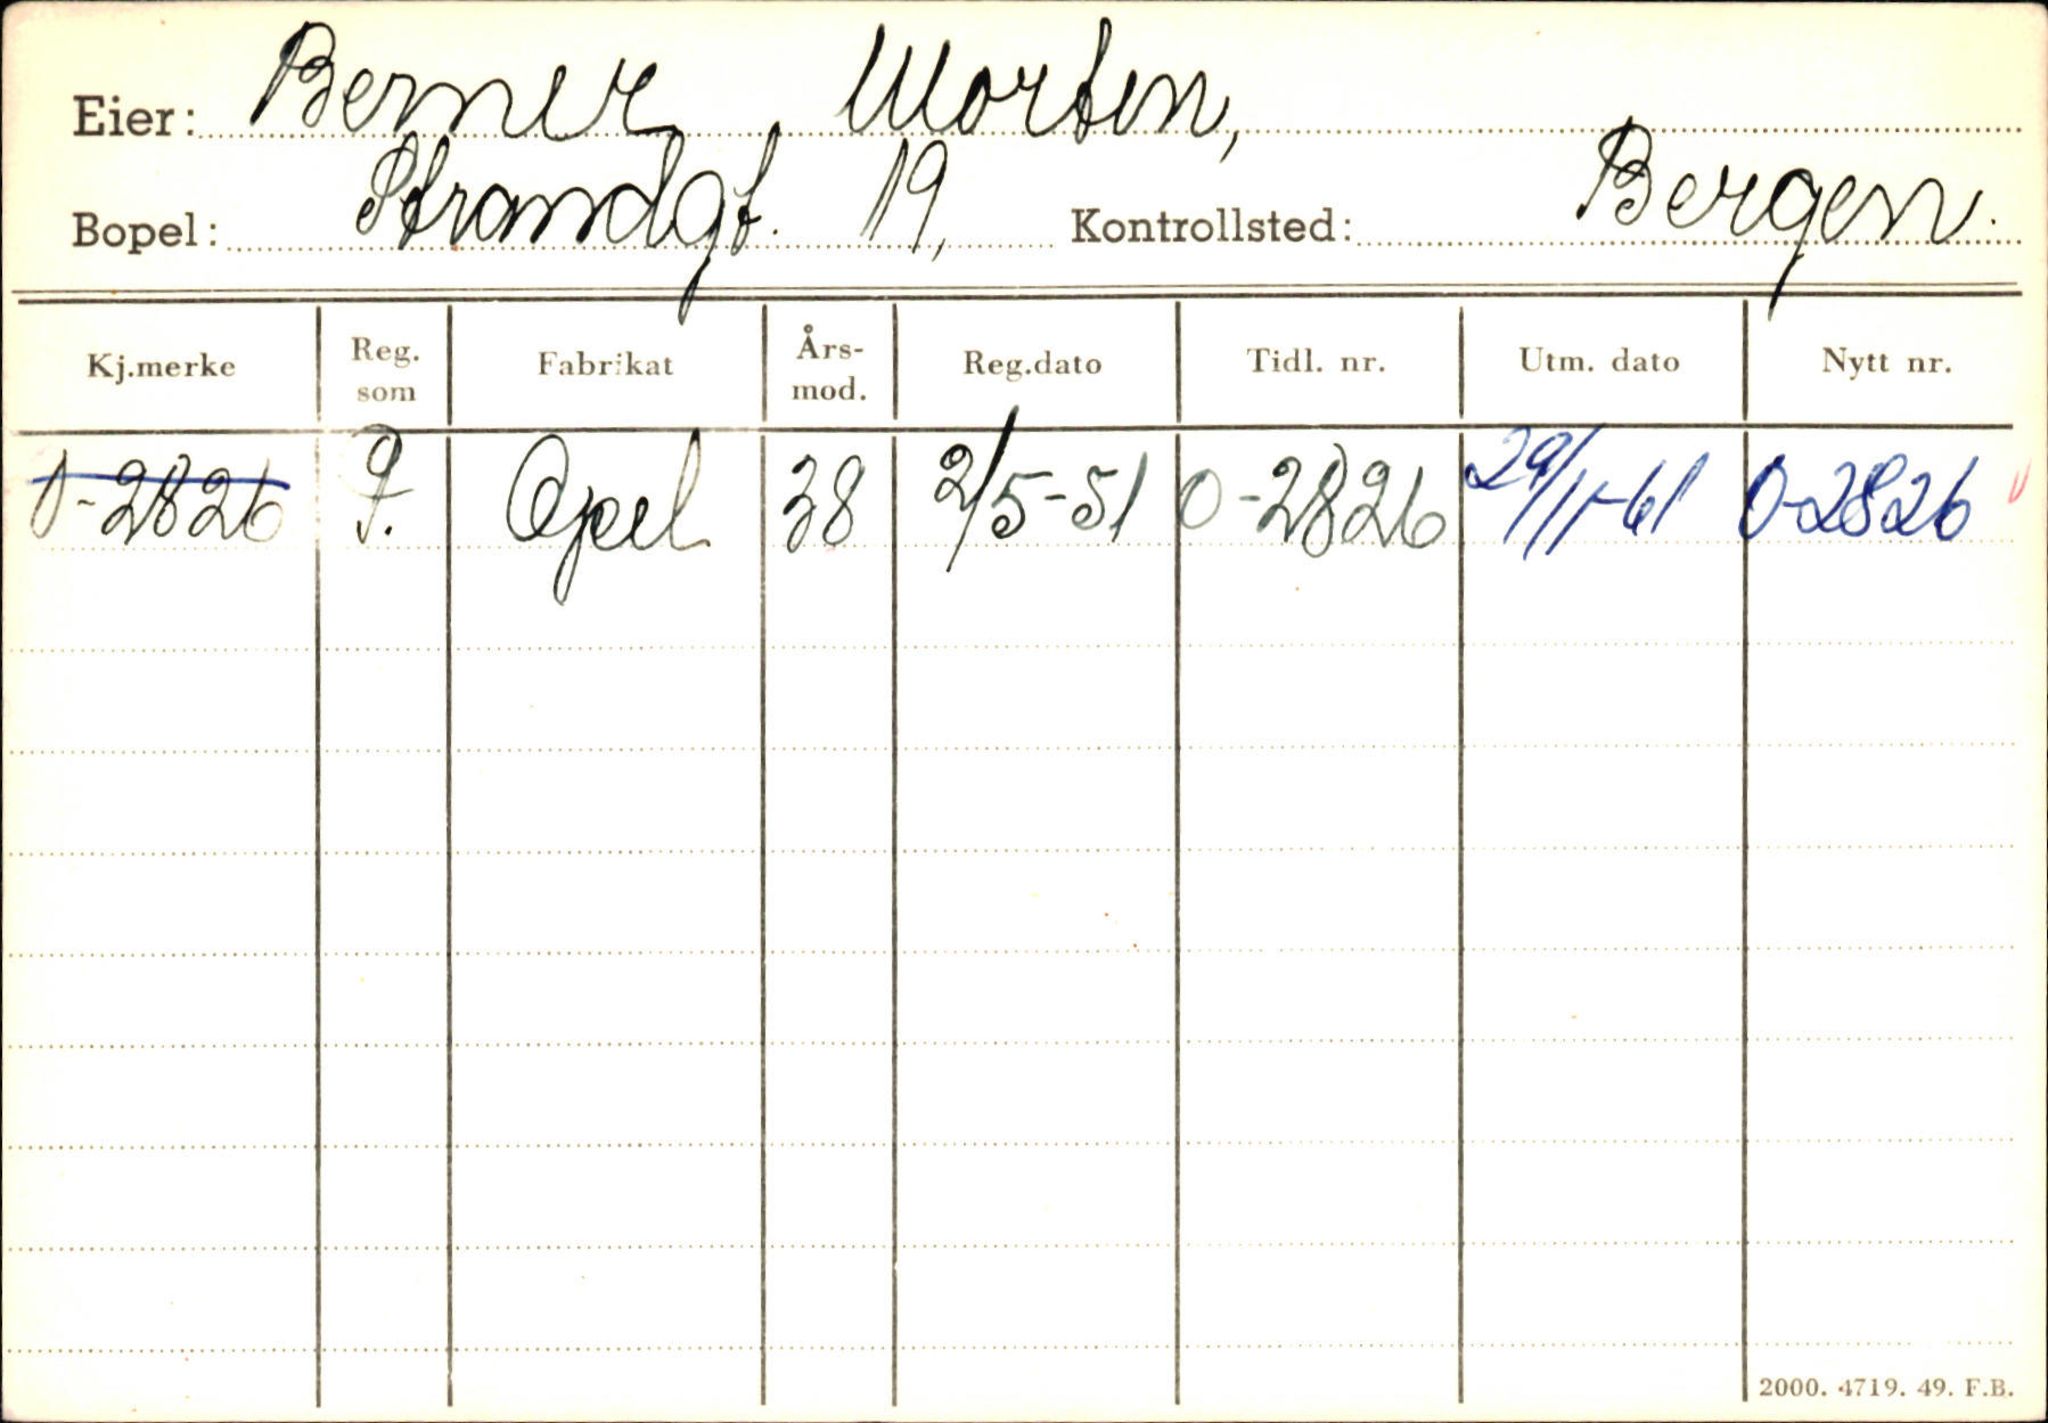 Eier: Berner, Morten,
Bopel: Strandgt. 19, Kontrollsted: Bergen.
Kj.merke Reg. som Fabrikat Års-mod. Reg.dato Tidl. nr. Utm. dato Nytt nr.
O-2826 P. Opel 38 2/5-51 O-2826 29/11-61 O-2826
2000. 4719. 49. F.B.